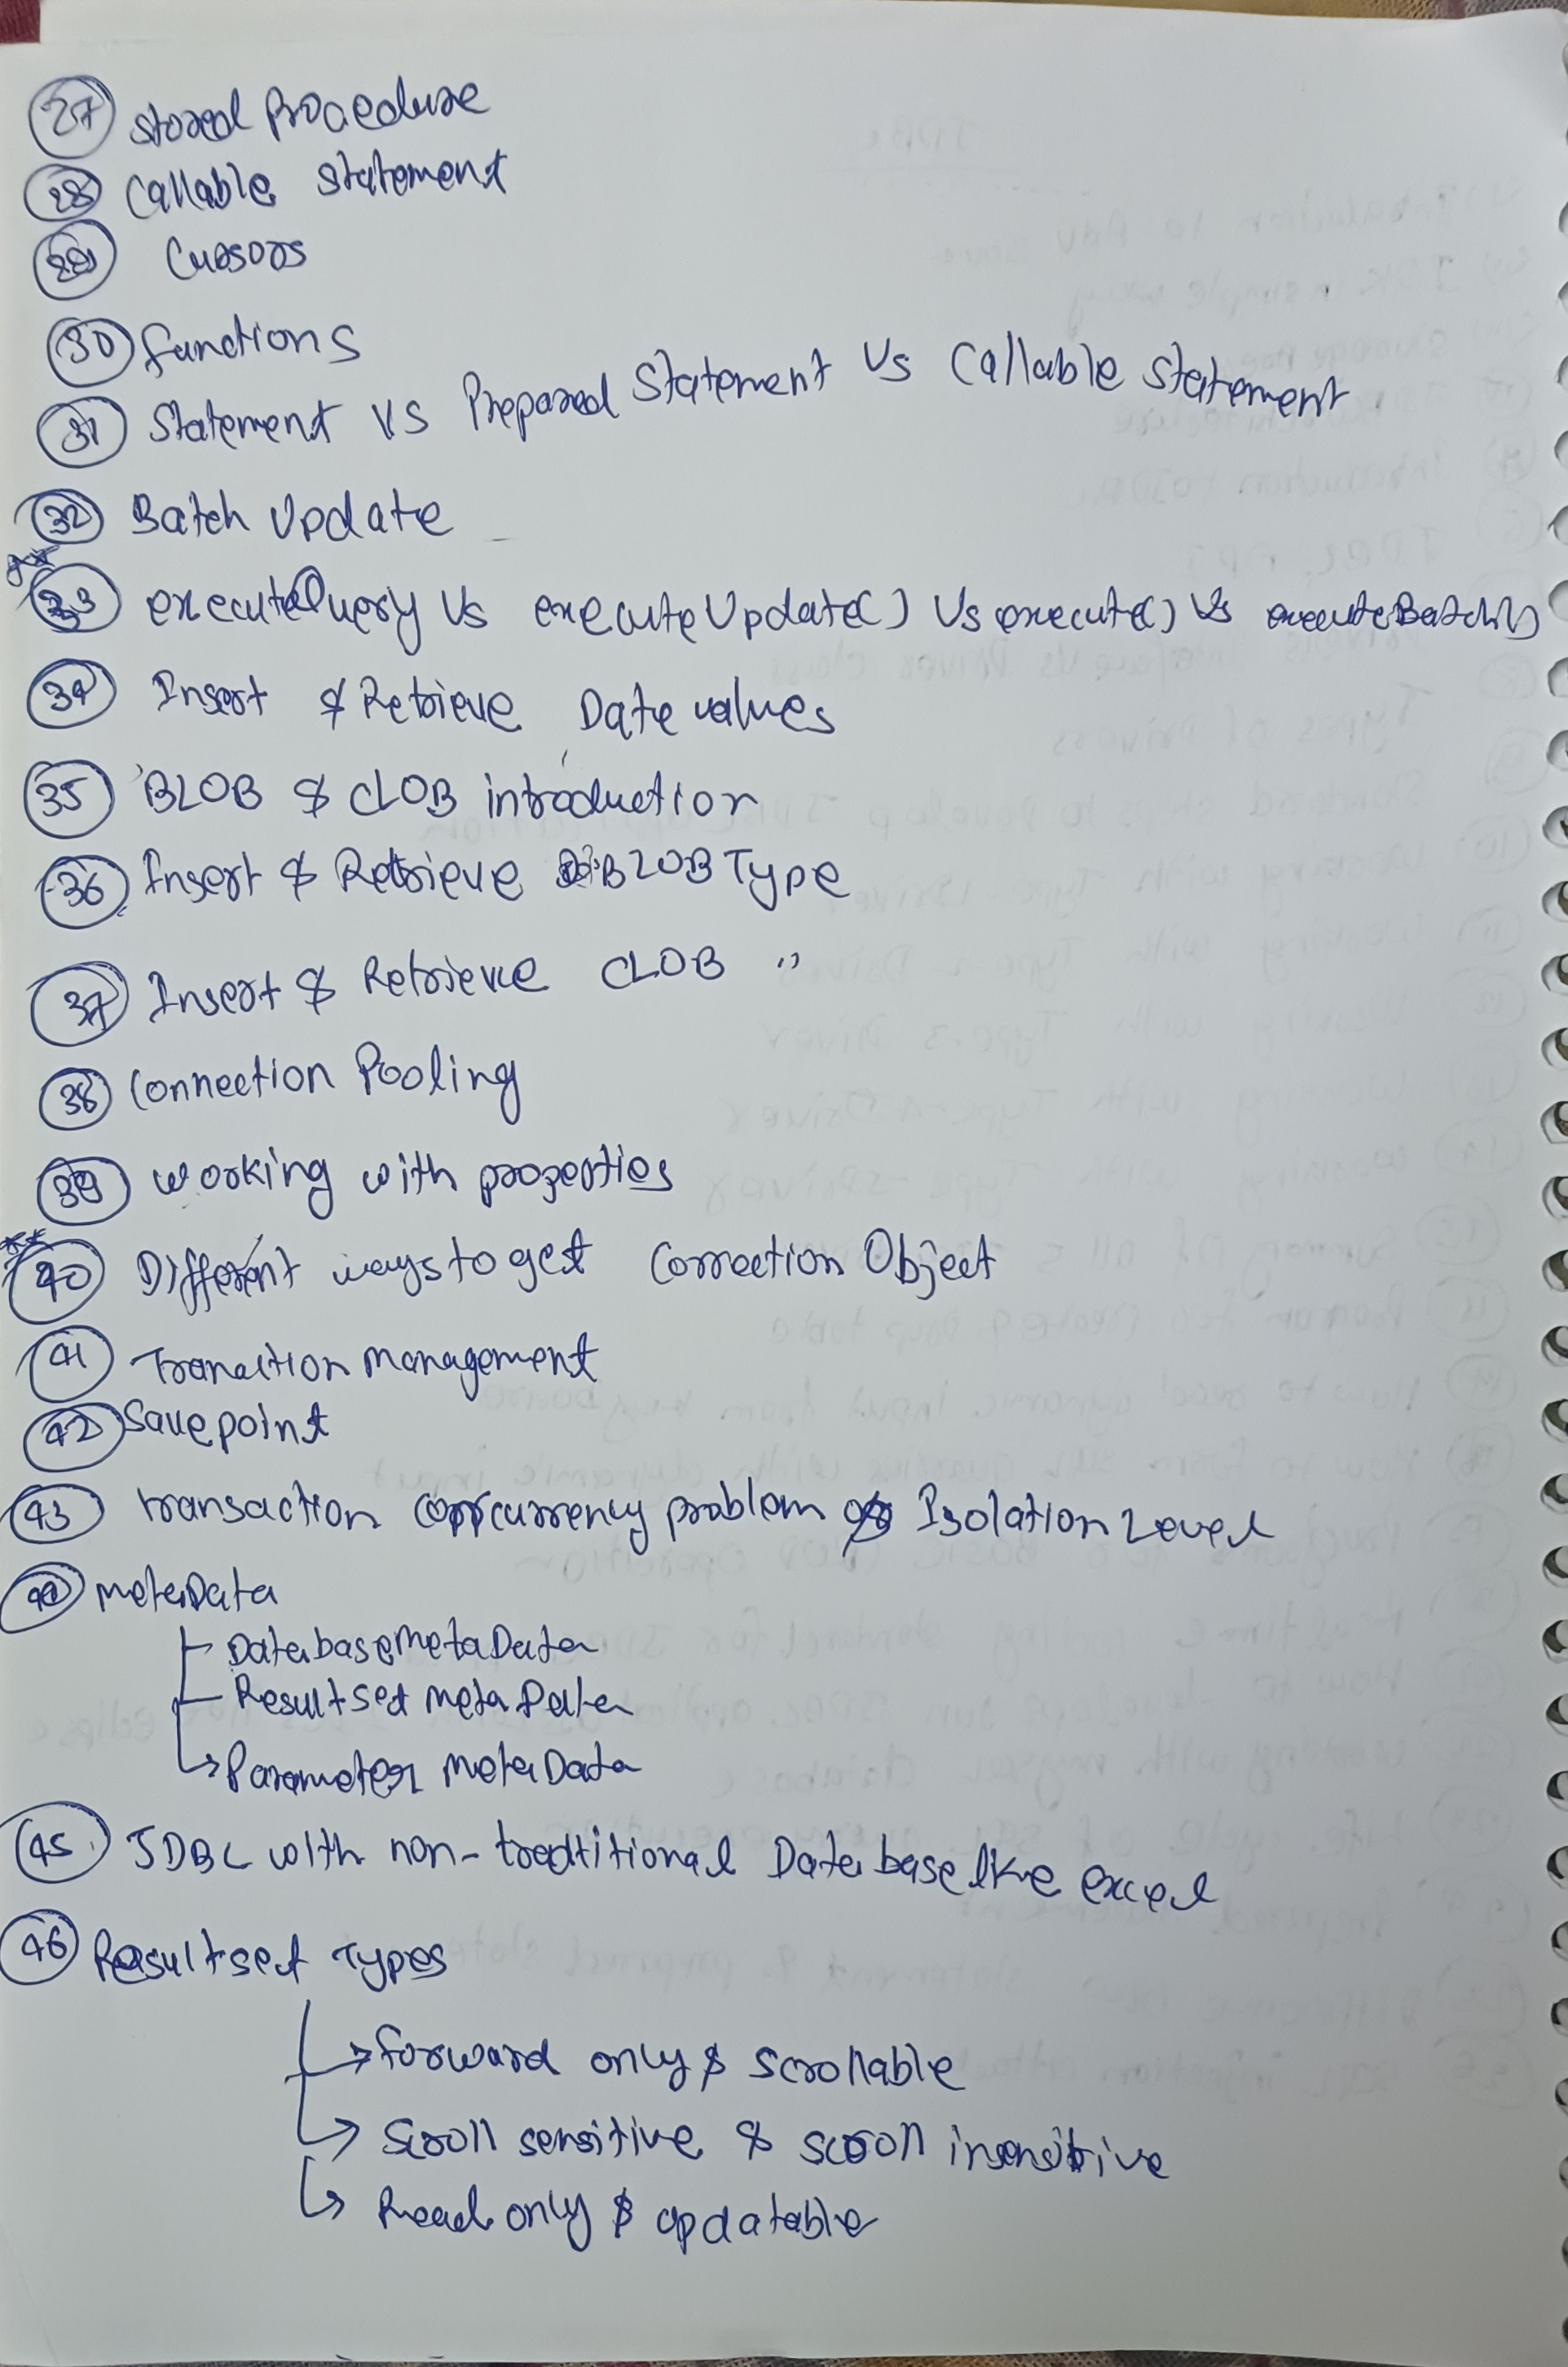 27 Stored Procedure
28 Callable Statement
29 Cursors
30 functions
31 Statement VS Prepared Statement Vs Callable Statement
32 Batch Update
33 executeQuery Vs executeUpdate() Vs execute() Vs executeBatch()
34 Insert & Retrieve Date values
35 BLOB & CLOB introduction
36 Insert & Retrieve BLOB Type
37 Insert & Retrieve CLOB "
38 Connection Pooling
39 working with properties
40 Different ways to get Connection Object
41 Tranaction management
42 Savepoint
43 transaction concurrency problem & Isolation Level
44 metaData
DatabasemetaData
Resultset meta Data
Parameter meta Data
45 JDBC with non-tradtitional Database like excel
46 Resultset Types
forward only & scrollable
Scroll sensitive & scroll insensitive
Read only & updatable